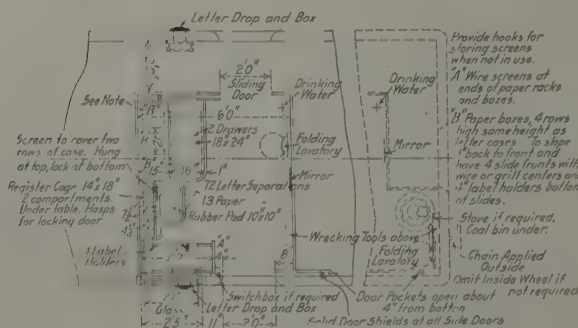 Letter Drop and Box
Provide hooks for
storing screens
when not in use.
"A" Wire screens at
ends of paper racks
and boxes.
"B" Paper boxes, 4 rows
high same height as
letter cases To slope
1" back to front and
have 4 slide fronts with
wire or grill centers and
label holders bottom
of slides.
Stove if required,
Coal bin under.
Chain Applied
Outside
Omit Inside Wheel if
not required
2'0"
Sliding
Door
Drinking
Water
Drinking
Water
See Note
"B"
6'0"
2 Drawers
18"x 24"
Folding
Lavatory
Mirror
Screen to cover two
rows of case. Hung
at top, lock at bottom
"B"
15"
72 Letter Separations
13 Paper
Rubber Pad 10"x10"
Mirror
Register Cage 14"x 18"
2 compartments.
Under table. Hasps
for locking door
Wrecking Tools above
Folding
Lavatory
Label
Holders
"A"
B
Switchbox if required
Letter Drop and Box
Door Pockets open about
4" from bottom
Solid Door Shields at all Side Doors
Glass
2'5"
11"
2'0"